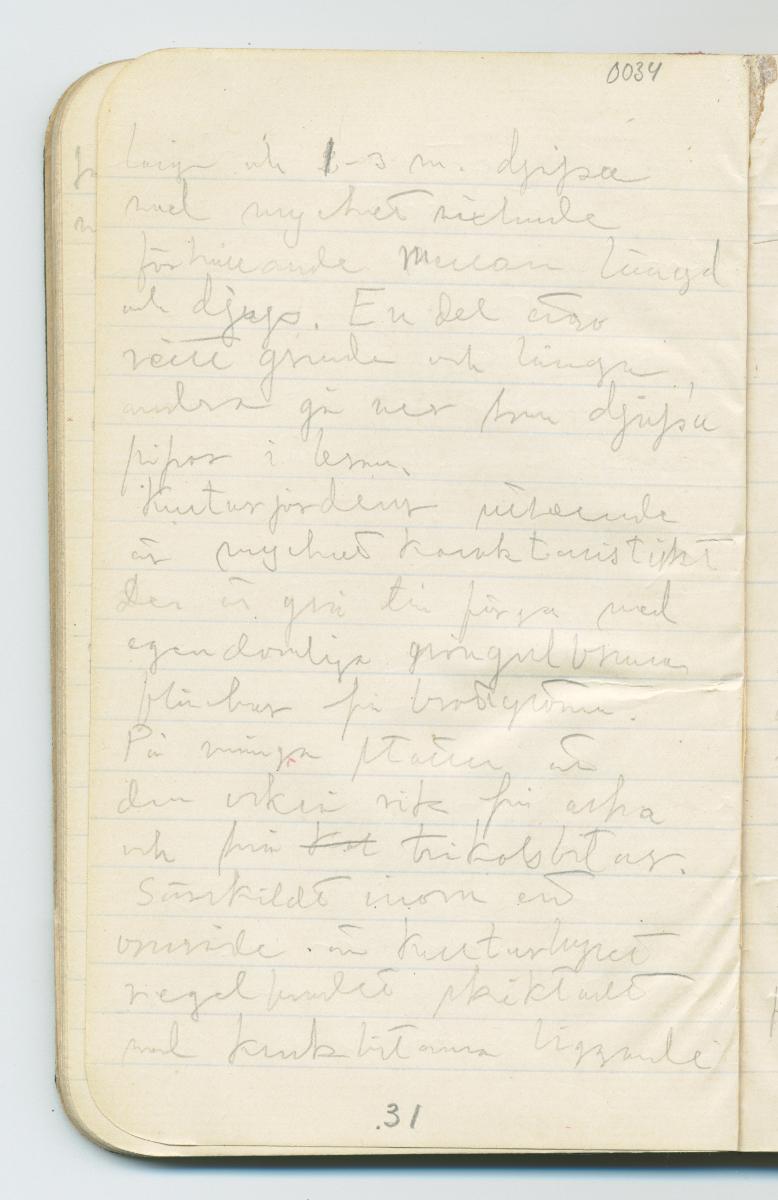 0034
långa och 1-3 m. djupa
med mycket växlande
förhållande mellan längd
och djup. En del äro
rätt grunda och långa
andra gå ner som djupa
pipor i leran.
Kulturjordens utseende
är mycket karaktäristiskt
den är grå till färgen med
egendomliga gröngulbruna
fläckar
På många ställen är
den också rik på aska
och på kol träkolsbitar.
Särskildt inom ett
område är kulturlagret
regelbundet skiktadt
med krukbitarna liggande
31